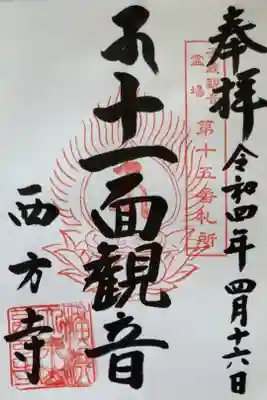 奉拝
令和四年 四月十六日
霊場
第十五番札所
十一面観音
西方寺